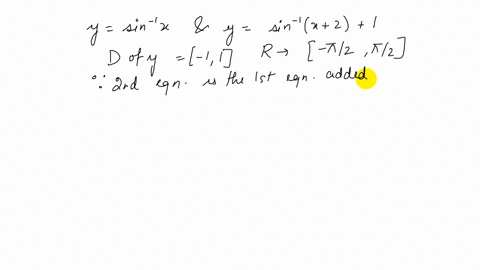 y = sin⁻¹x & y = sin⁻¹(x+2) + 1
D of y = [-1, 1] R → [-π/2, π/2]
∵ 2nd eqn. is the 1st eqn. added